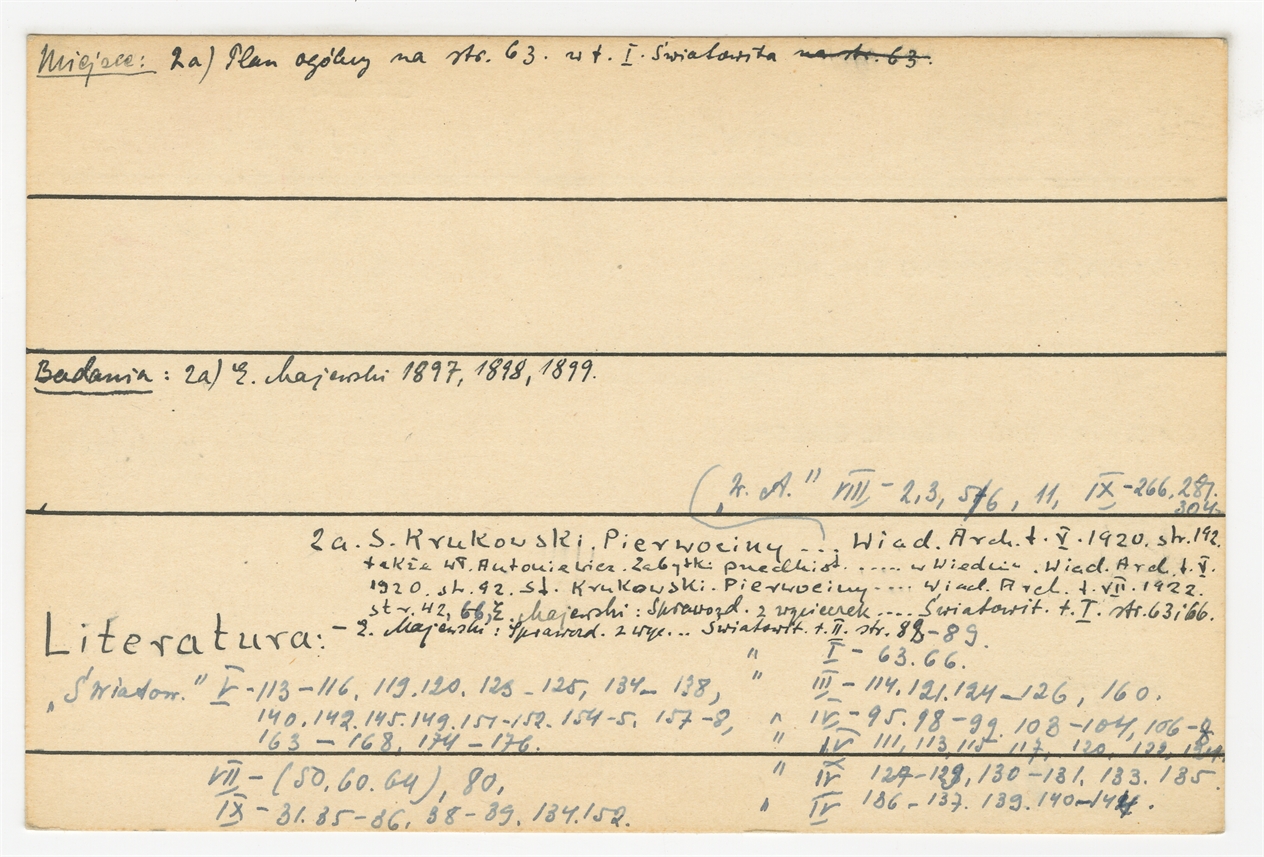 Miejsce: 2a) Plan ogólny na str. 63. w t. I. Światowita na str. 63.
Badania: 2a) E. Majewski 1897, 1898, 1899.
„W. A." VIII - 2,3, 5/6, 11, IX - 266, 281.
304.
2a. S. Krukowski. Pierwociny ... Wiad. Arch. t. V. 1920. str. 192.
także Wł. Antoniewicz. Zabytki przedhist. ..... w Wiedniu. Wiad. Arch. t. V.
1920. str. 92. St. Krukowski. Pierwociny .... Wiad. Arch. t. VII. 1922.
str. 42, 66, E. Majewski: Sprawozd. z wycieczek .... Światowit. t. I. str. 63 i 66.
Literatura: - E. Majewski: Sprawozd. z wyc... Światowit. t. II. str. 88-89.
" I - 63. 66.
„Światow." V - 113-116, 119. 120. 123-125, 134-138, " III - 114. 121. 124-126, 160.
140. 142. 145. 149. 151-152. 154-5. 157-8, " IV - 95. 98-99. 103-104, 106-8
163-168, 174-176. " IV 111, 113, 115 117, 120, 122, 124.
VII - (50. 60. 64), 80, " IV 127-129, 130-131. 133. 135.
IX - 31. 35-36, 38-39. 134. 152. " IV 136-137. 139. 140-144.